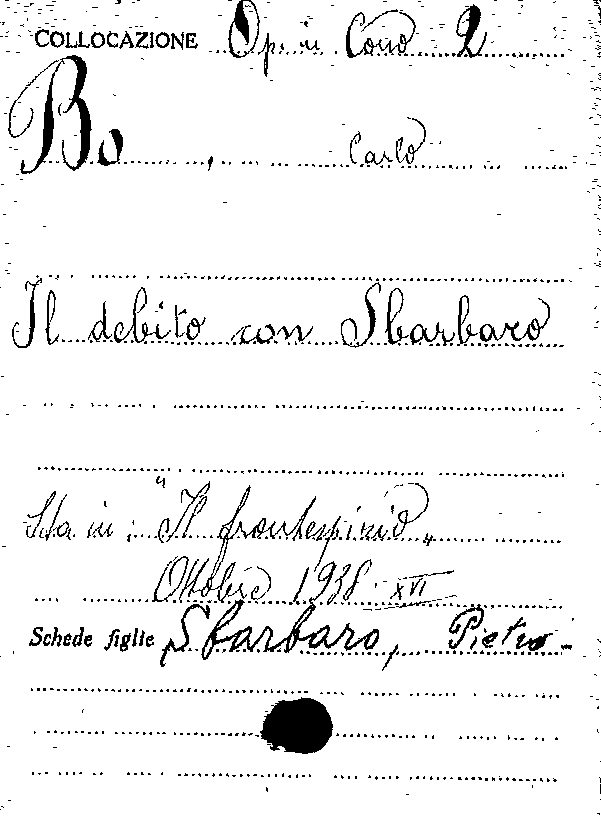 COLLOCAZIONE Op. in Corso 2
Bo, Carlo
Il debito con Sbarbaro
Sta in: "Il frontespizio„
Ottobre 1938 XVI
Schede figlie Sbarbaro, Pietro.